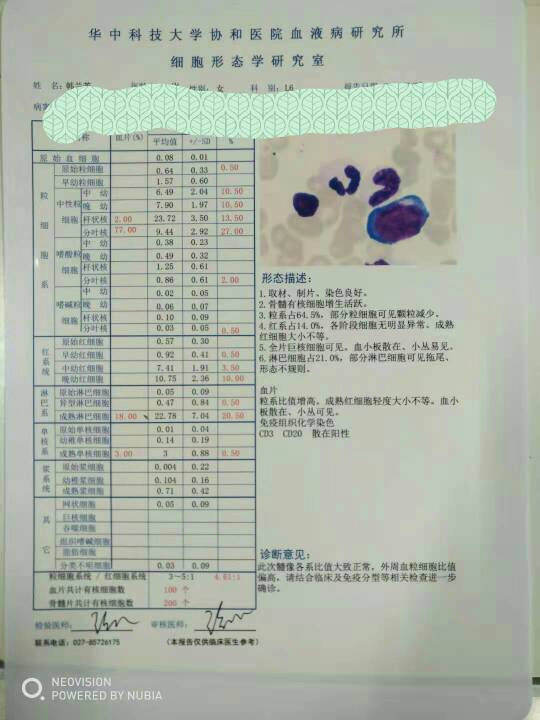 华中科技大学协和医院血液病研究所
细胞形态学研究室
姓 名: 性别: 女 科 别: L6
名称 血片(%) 平均值 +/-SD %
原始血细胞 0.08 0.01
粒细胞系
原始粒细胞 0.64 0.33 0.50
早幼粒细胞 1.57 0.60
中性粒细胞 中 幼 6.49 2.04 10.50
晚 幼 7.90 1.97 10.50
杆状核 2.00 23.72 3.50 13.50
分叶核 77.00 9.44 2.92 27.00
嗜酸粒细胞 中 幼 0.38 0.23
晚 幼 0.49 0.32
杆状核 1.25 0.61
分叶核 0.86 0.61 2.00
嗜碱粒细胞 中 幼 0.02 0.05
晚 幼 0.06 0.07
杆状核 0.10 0.09
分叶核 0.03 0.05 0.50
红系统
原始红细胞 0.57 0.30
早幼红细胞 0.92 0.41 0.50
中幼红细胞 7.41 1.91 3.50
晚幼红细胞 10.75 2.36 10.00
淋巴系
原始淋巴细胞 0.05 0.09
异型淋巴细胞 0.47 0.84 0.50
成熟淋巴细胞 18.00 22.78 7.04 20.50
单核系
原始单核细胞 0.01 0.04
幼稚单核细胞 0.14 0.19
成熟单核细胞 3.00 3 0.88 0.50
浆系统
原始浆细胞 0.004 0.22
幼稚浆细胞 0.104 0.16
成熟浆细胞 0.71 0.42
其它
网状细胞 0.05 0.09
巨核细胞
吞噬细胞
组织嗜碱细胞
脂肪细胞
分类不明细胞 0.03 0.09
粒细胞系统 / 红细胞系统 3~5:1 4.61:1
血片共计有核细胞数 100 个
骨髓片共计有核细胞数 200 个
检验医师: 审核医师:
联系电话: 027-85726175 (本报告仅供临床医生参考)
形态描述:
1. 取材、制片、染色良好。
2. 骨髓有核细胞增生活跃。
3. 粒系占64.5%, 部分粒细胞可见颗粒减少。
4. 红系占14.0%, 各阶段细胞无明显异常、成熟
红细胞大小不等。
5. 全片巨核细胞可见。血小板散在、小丛易见。
6. 淋巴细胞占21.0%, 部分淋巴细胞可见拖尾、
形态不规则。
血片
粒系比值增高。成熟红细胞轻度大小不等。血小
板散在、小丛可见。
免疫组织化学染色
CD3 CD20 散在阳性
诊断意见:
此次髓像各系比值大致正常, 外周血粒细胞比值
偏高。请结合临床及免疫分型等相关检查进一步
确诊。
NEOVISION
POWERED BY NUBIA